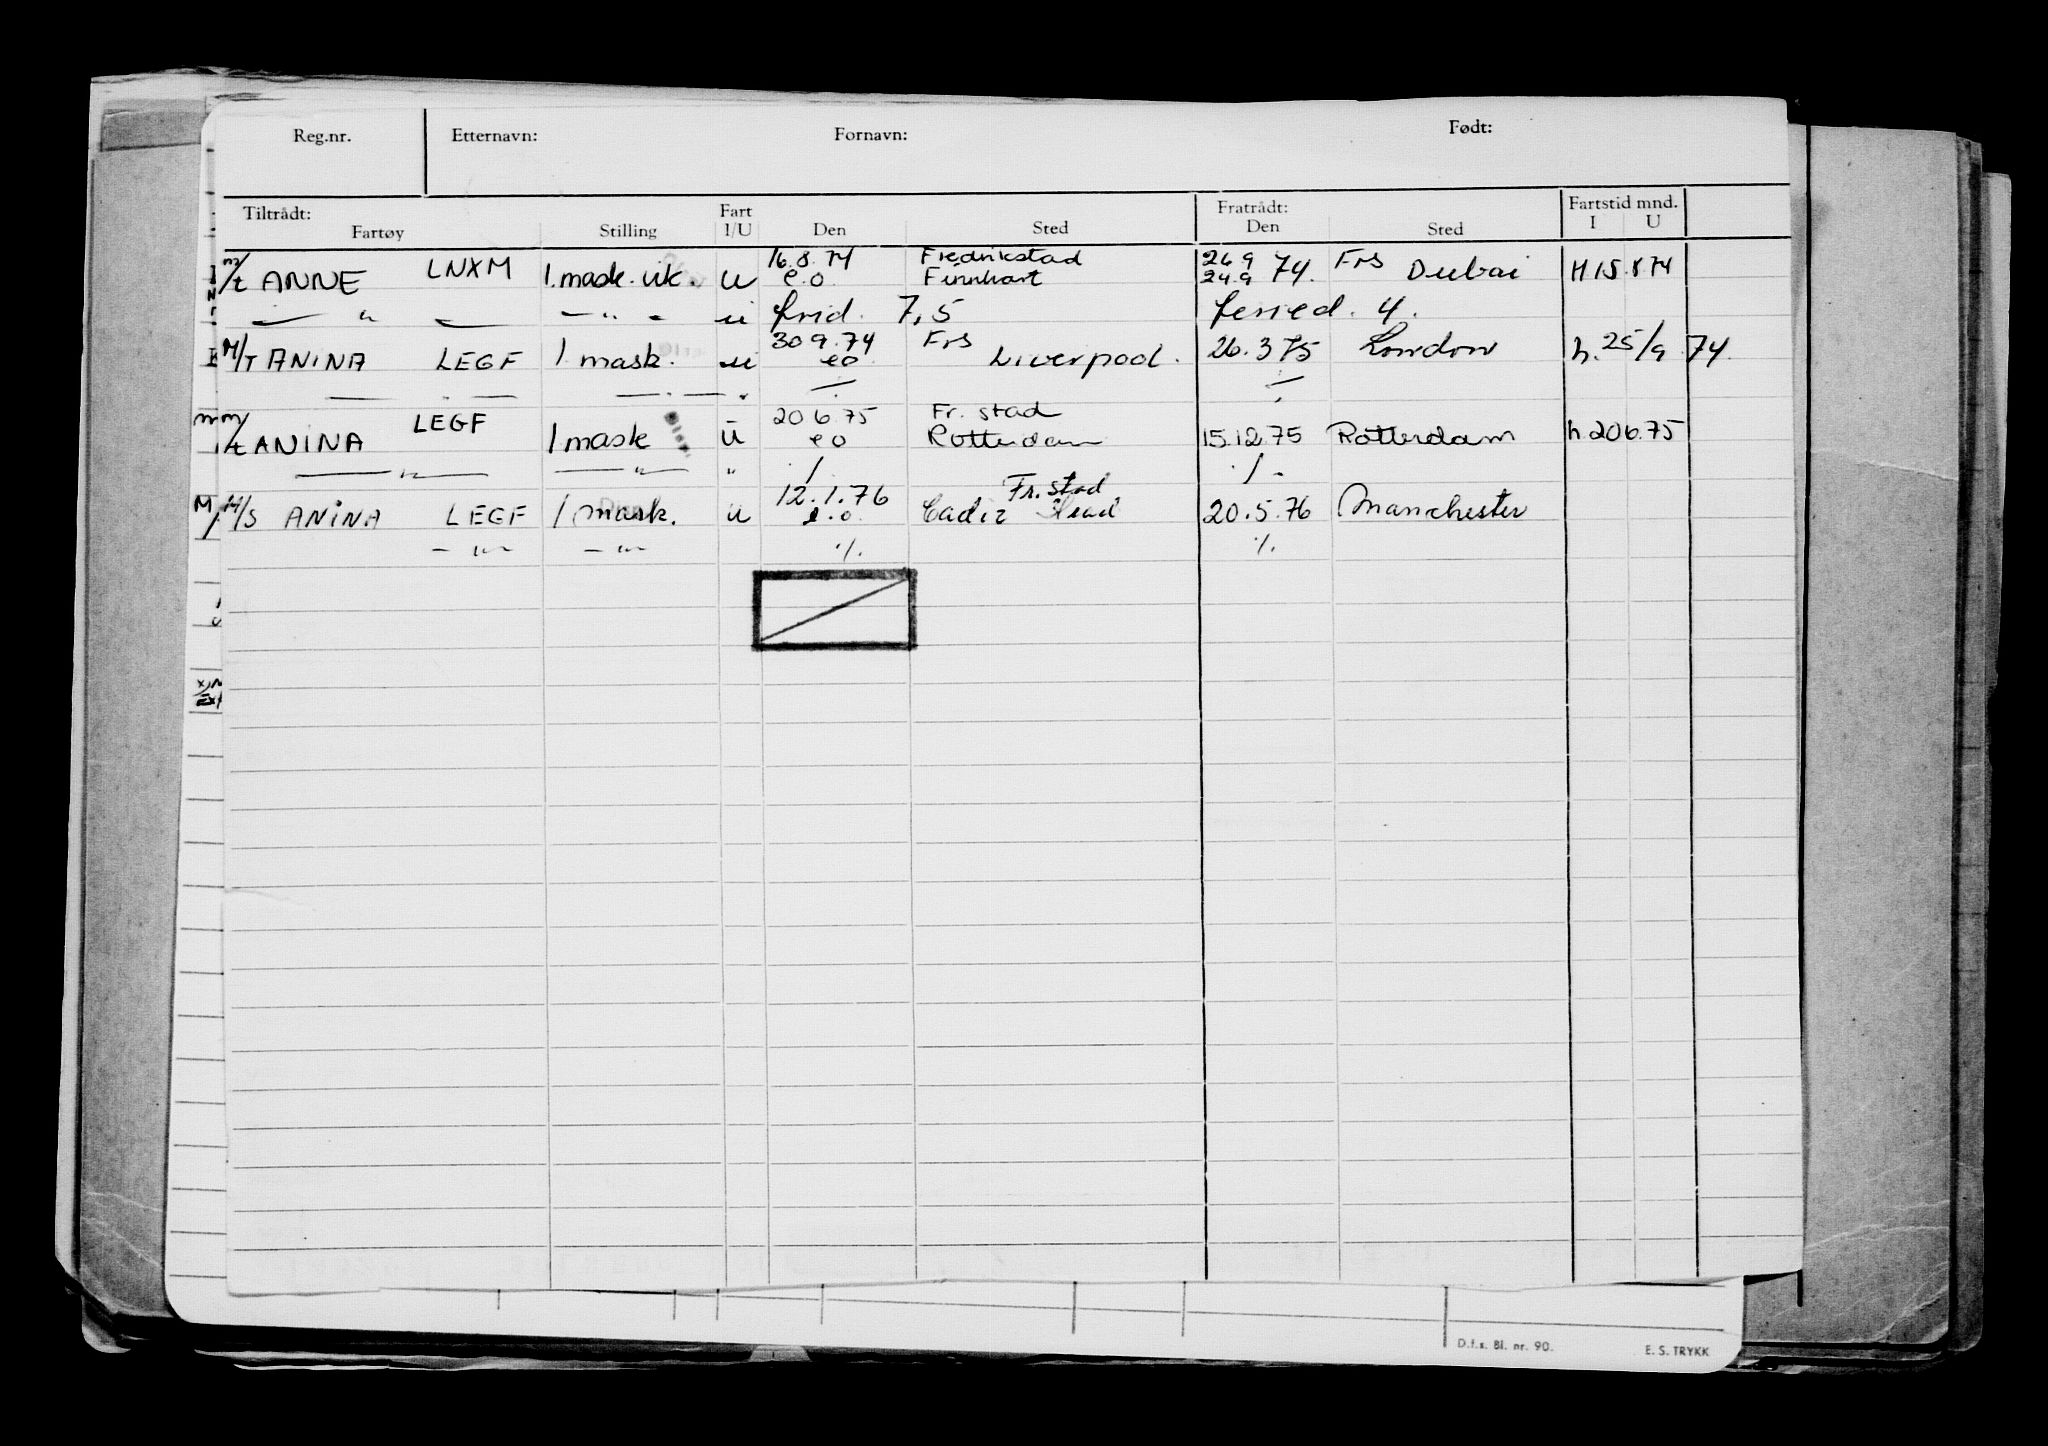 Reg.nr. Etternavn: Fornavn: Født:
Tiltrådt: Fart Fratrådt: Fartstid mnd.
Fartøy Stilling I/U Den Sted Den Sted I U
16.8.74 Fredrikstad 26.9
m/t ANNE LNXM 1.mask. vik. u e.o. Finnhart 24.9 74. Frs Dubai H 15.8.74
— " — — " — u frid. 7,5 feried. 4.
30 9.74 Frs
M/T ANINA LEGF 1 mask. u eo Liverpool. 26.3 75 London h. 25/9 74.
— " — — " — ./. ./.
20 6.75 Fr. stad
m/t ANINA LEGF 1 mask ü eo Rotterdam 15.12.75 Rotterdam h. 20 6.75
— " — — " — " ./. ./.
12.1.76 Fr. stad
M/S ANINA LEGF 1 mask. u e.o. Cadiz 20.5.76 Manchester
— " — — " — ./. ./.
D.f.s. Bl. nr. 90. E. S. TRYKK